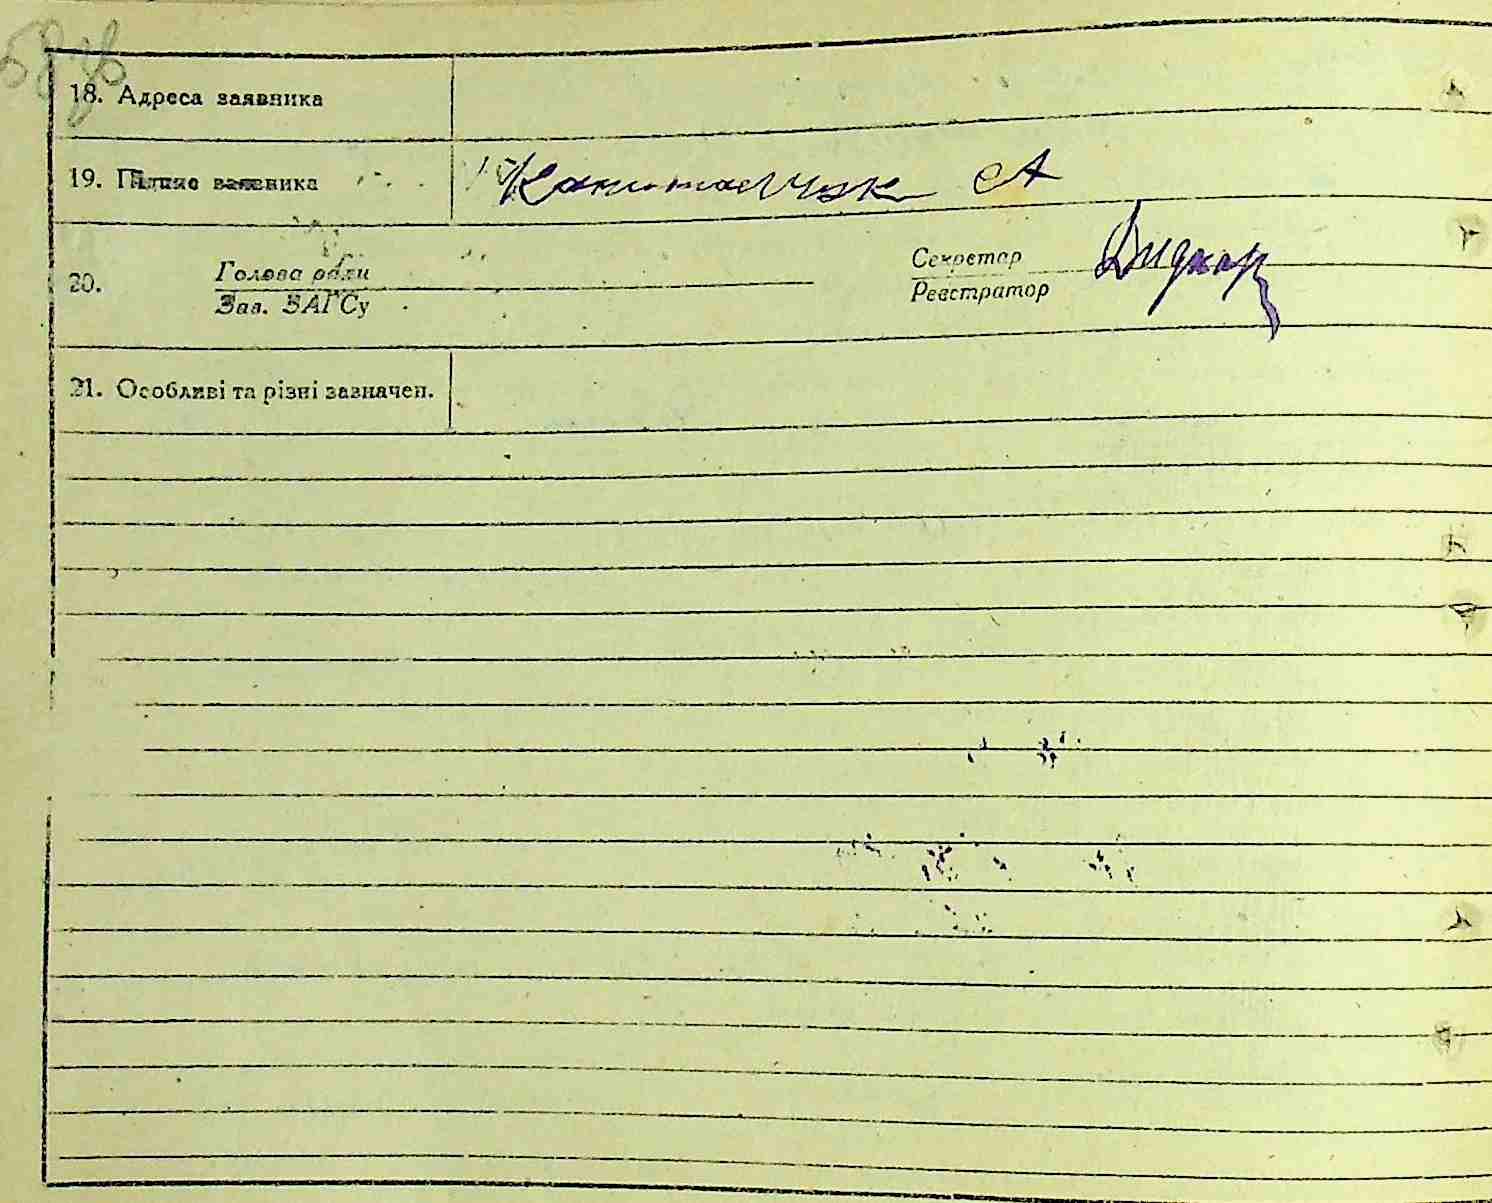 18. Адреса заявника
19. Підпис заявника Капитанчук А
20. Голова ради Секретар
Зав. ЗАГСу Реєстратор
21. Особливі та різні зазначен.